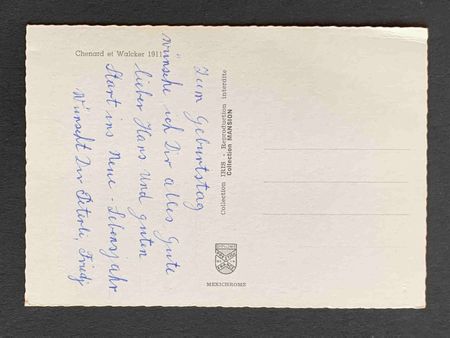 Chenard et Walcker 1911
Zum Geburtstag
wünsche ich Dir alles Gute
lieber Hans und guten
Start ins neue Lebensjahr
Wünscht Dir Peterli,
Collection IRIS - Reproduction interdite
Collection MANSION
MEXICHROME